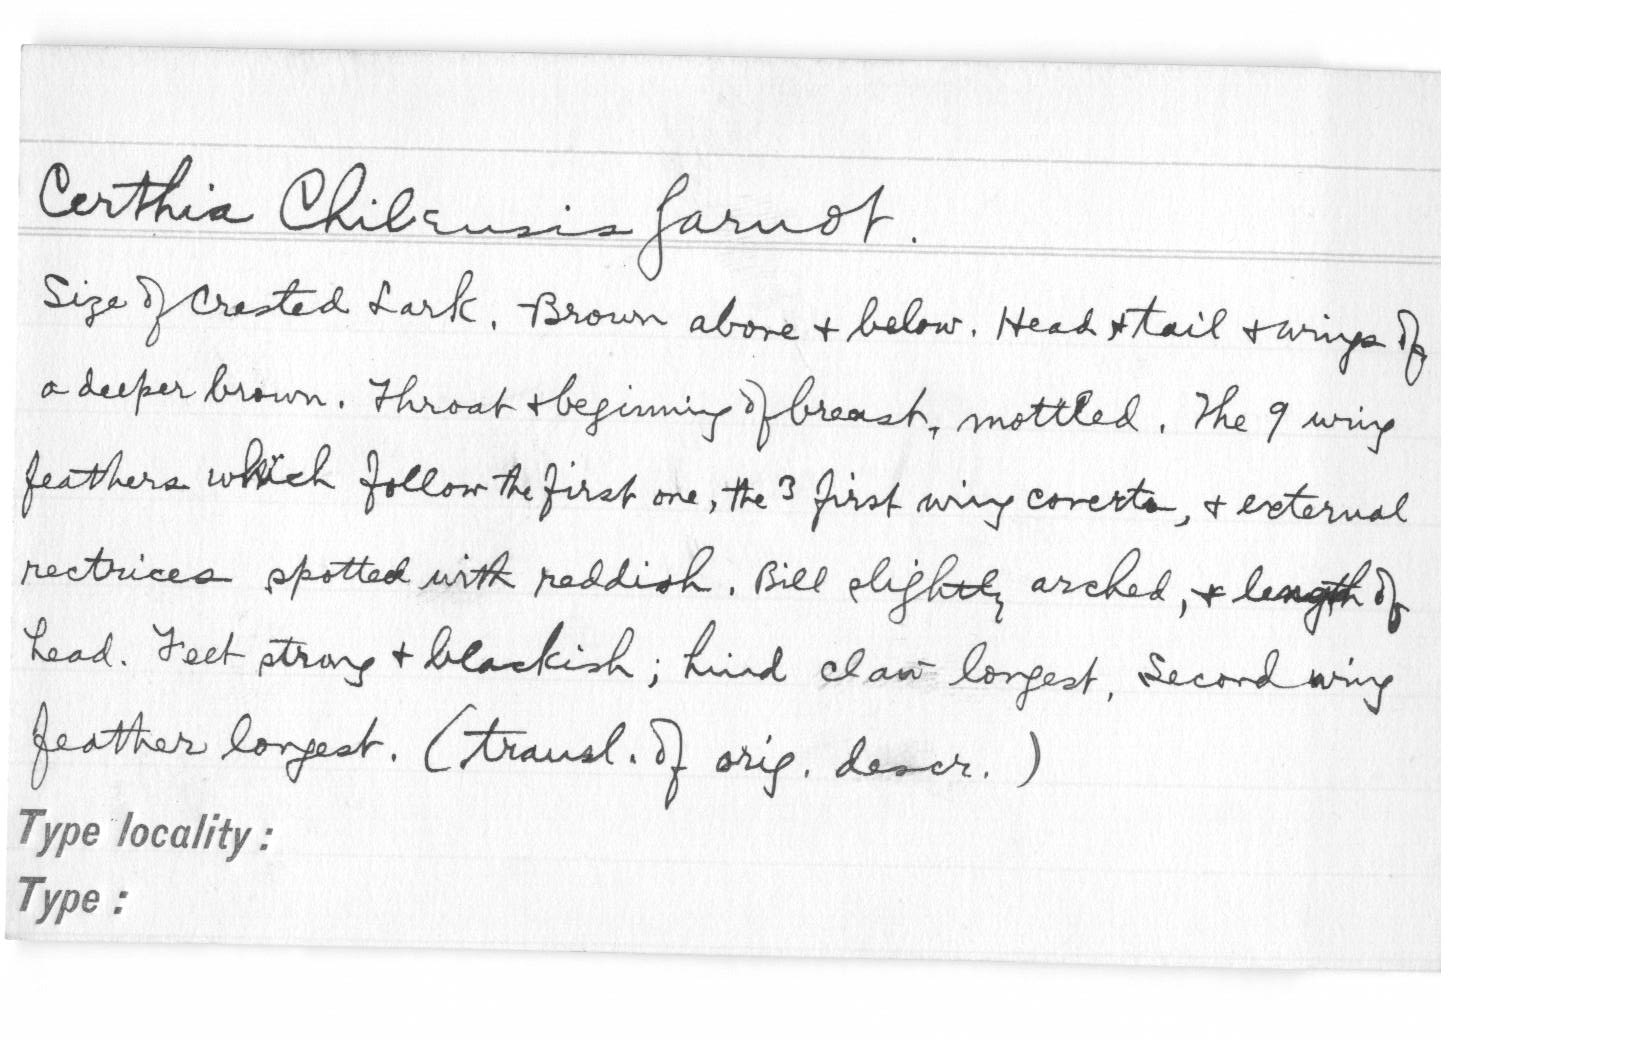 Certhia Chilensis Garnot.
Size of Crested Lark. Brown above + below. Head + tail + wings of
a deeper brown. Throat + beginning of breast, mottled. The 9 wing
feathers which follow the first one, the 3 first wing coverts, + external
rectrices spotted with reddish. Bill slightly arched, + length of
head. Feet strong + blackish; hind claw longest, Second wing
feather longest. (transl. of orig. descr.)
Type locality:
Type: